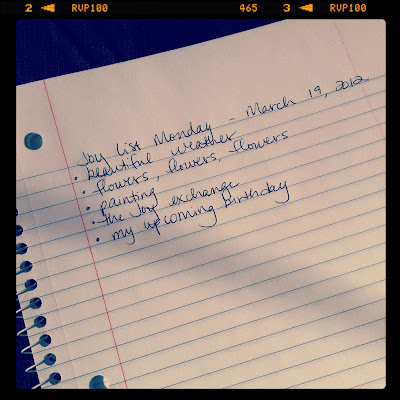 2 ◄ RVP100 465 3 ◄ RVP100
Joy List Monday - March 19, 2012
• beautiful weather
• flowers, flowers, flowers
• painting
• the Joy exchange
• my upcoming birthday